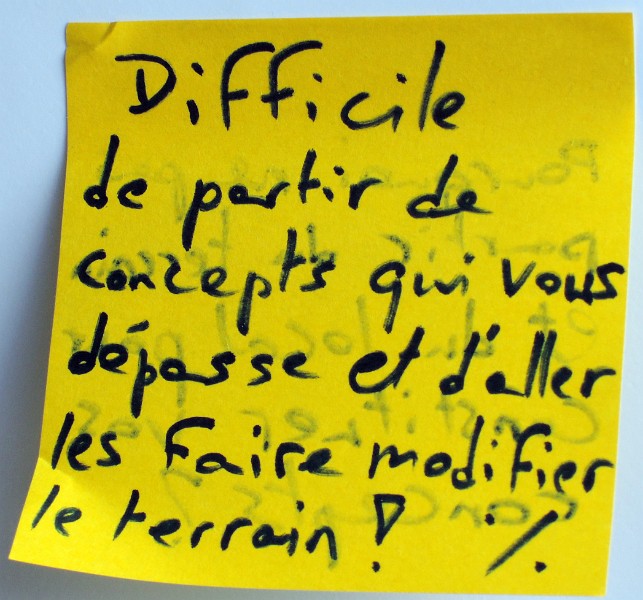 Difficile
de partir de
concepts qui vous
dépasse et d'aller
les faire modifier
le terrain ! ./.